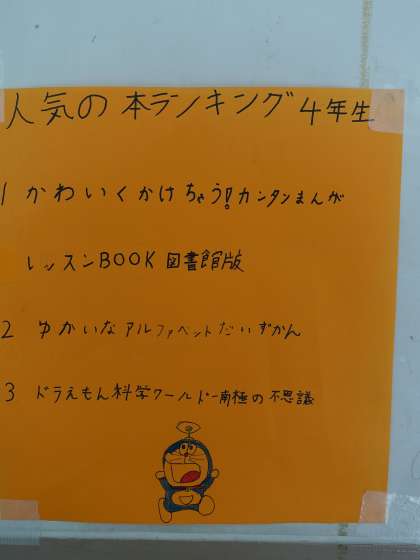 人気の本ランキング4年生
1 かわいくかけちゃう!カンタンまんが
レッスンBOOK図書館版
2 ゆかいなアルファベットだいずかん
3 ドラえもん科学ワールドー南極の不思議